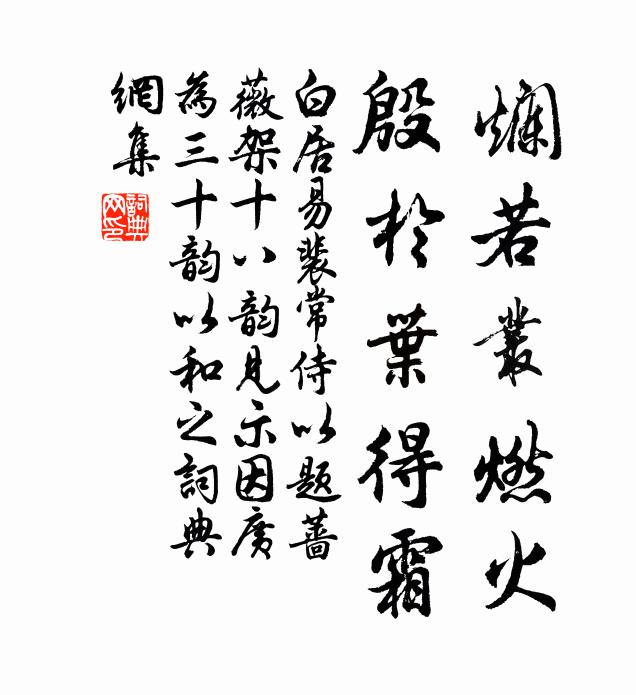 爛若叢燃火
殷於葉得霜
白居易裴常侍以题蔷
薇架十八韵見示因廣
為三十韵以和之詞典
網集
詞典网印